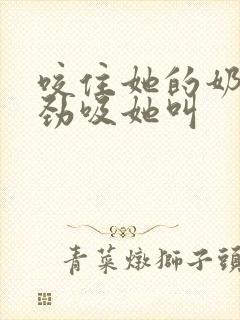 咬住她的奶
劲吸她叫
青菜燉獅子頭